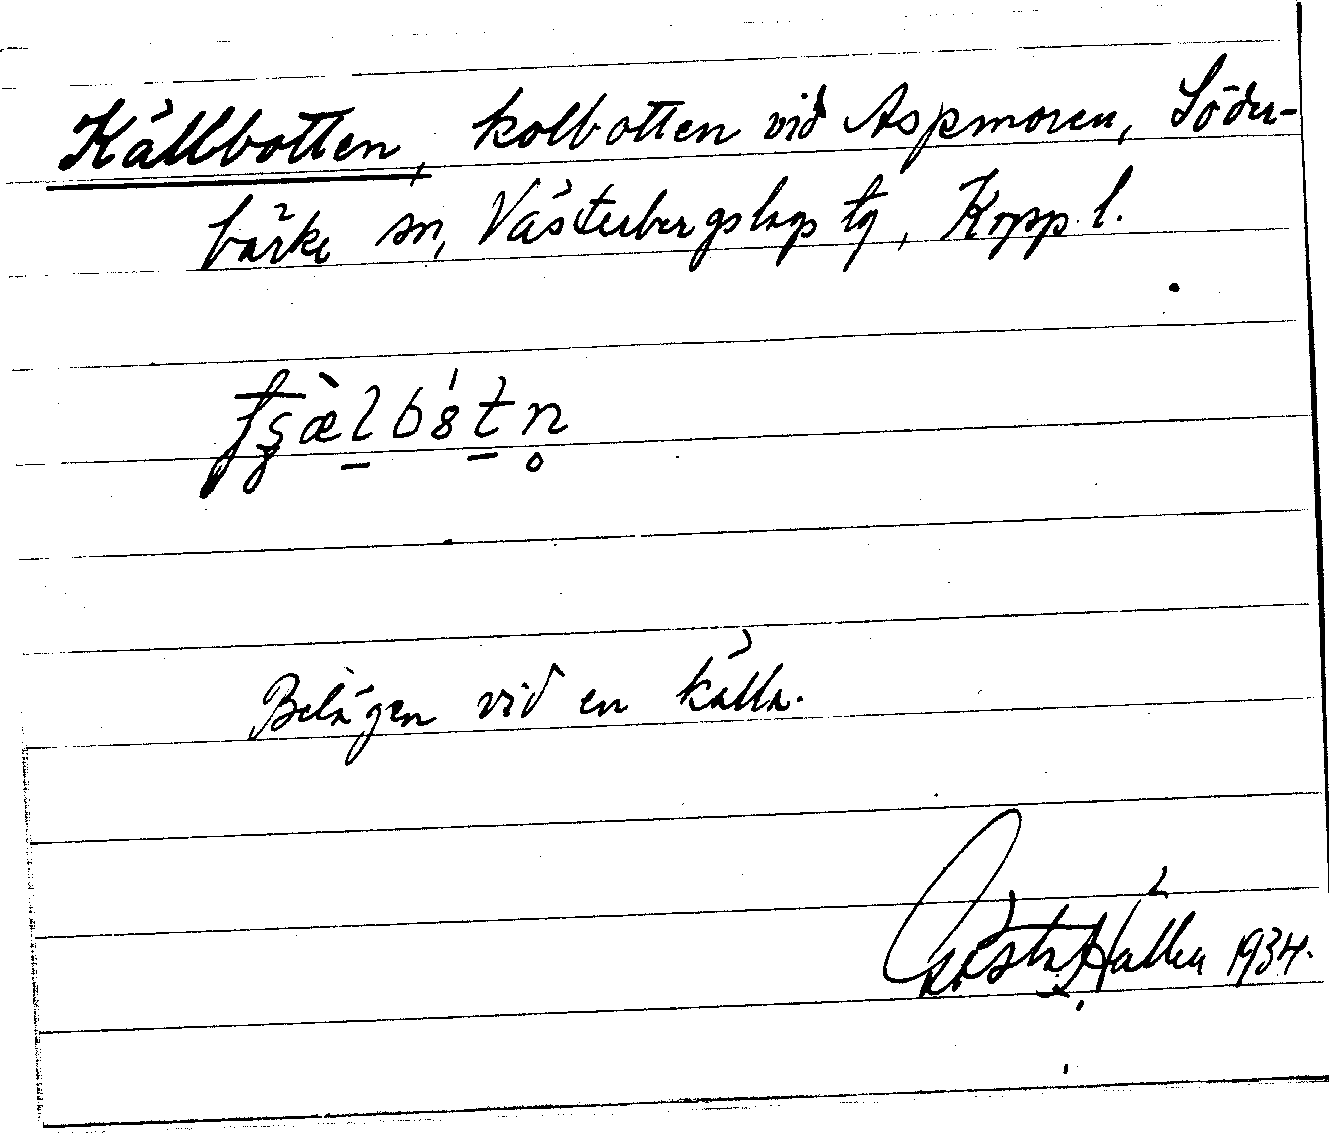 Källbotten, kolbotten vid Aspmoren, Söder-
bärke sn, Västerbergslags tg, Kopp. l.
Belägen vid en källa.
Gösta Hallen 1934.